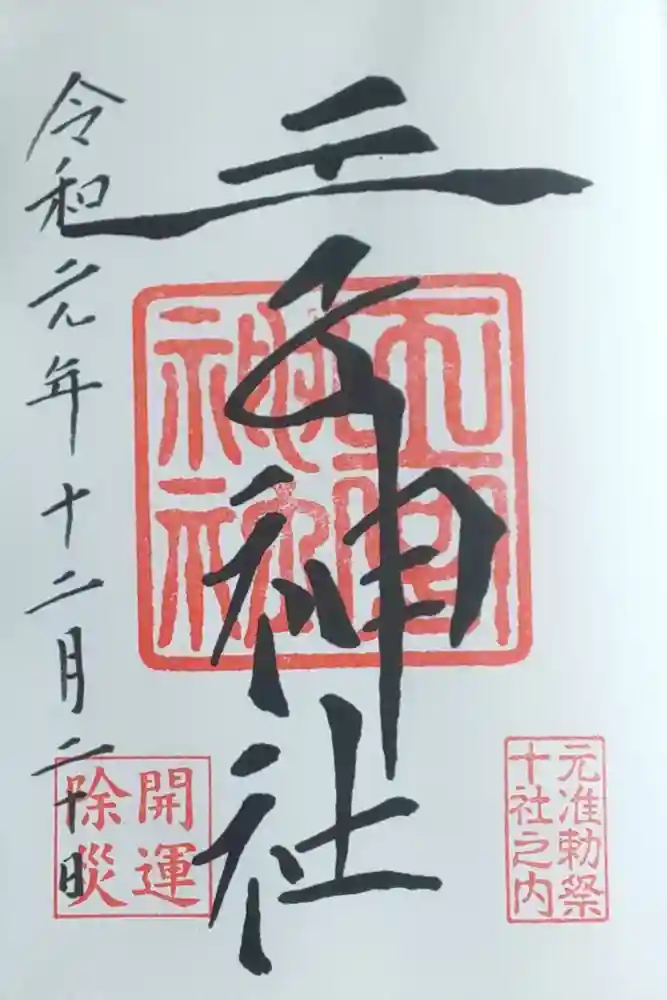 元准勅祭
十社之内
王子神社
開運
除災
令和元年十二月二十日